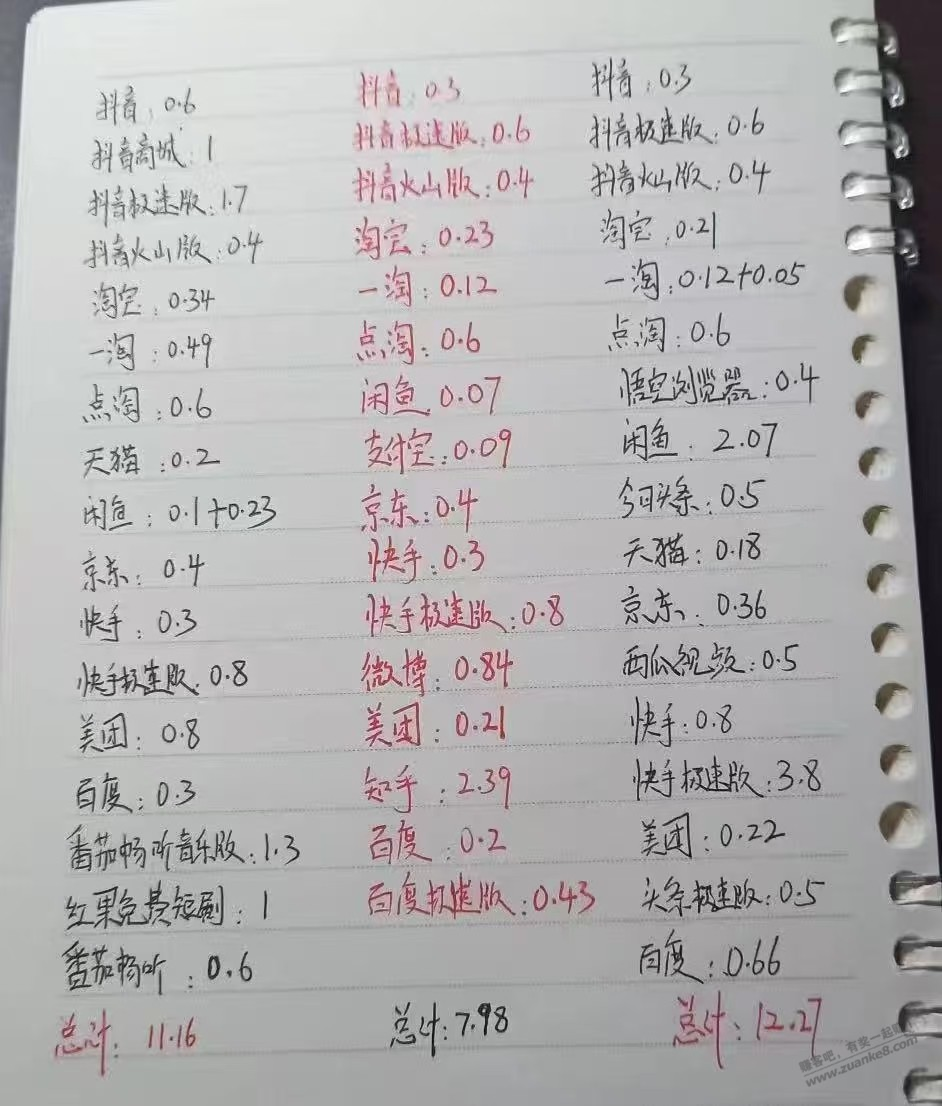 抖音：0.6
抖音商城：1
抖音极速版：1.7
抖音火山版：0.4
淘宝：0.34
一淘：0.49
点淘：0.6
天猫：0.2
闲鱼：0.1+0.23
京东：0.4
快手：0.3
快手极速版：0.8
美团：0.8
百度：0.3
番茄畅听音乐版：1.3
红果免费短剧：1
番茄畅听：0.6
总计：11.16
抖音：0.3
抖音极速版：0.6
抖音火山版：0.4
淘宝：0.23
一淘：0.12
点淘：0.6
闲鱼 0.07
支付宝：0.09
京东：0.4
快手：0.3
快手极速版：0.8
微博：0.84
美团：0.21
知乎：2.39
百度：0.2
百度极速版：0.43
总计：7.98
抖音：0.3
抖音极速版：0.6
抖音火山版：0.4
淘宝：0.21
一淘：0.12+0.05
点淘：0.6
悟空浏览器：0.4
闲鱼：2.07
今日头条：0.5
天猫：0.18
京东：0.36
西瓜视频：0.5
快手：0.8
快手极速版：3.8
美团：0.22
头条极速版：0.5
百度：0.66
总计：12.27
赚客吧，有奖一起赚
www.zuanke8.com